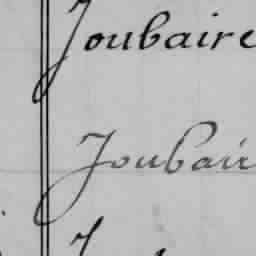 Joubaire
Joubair